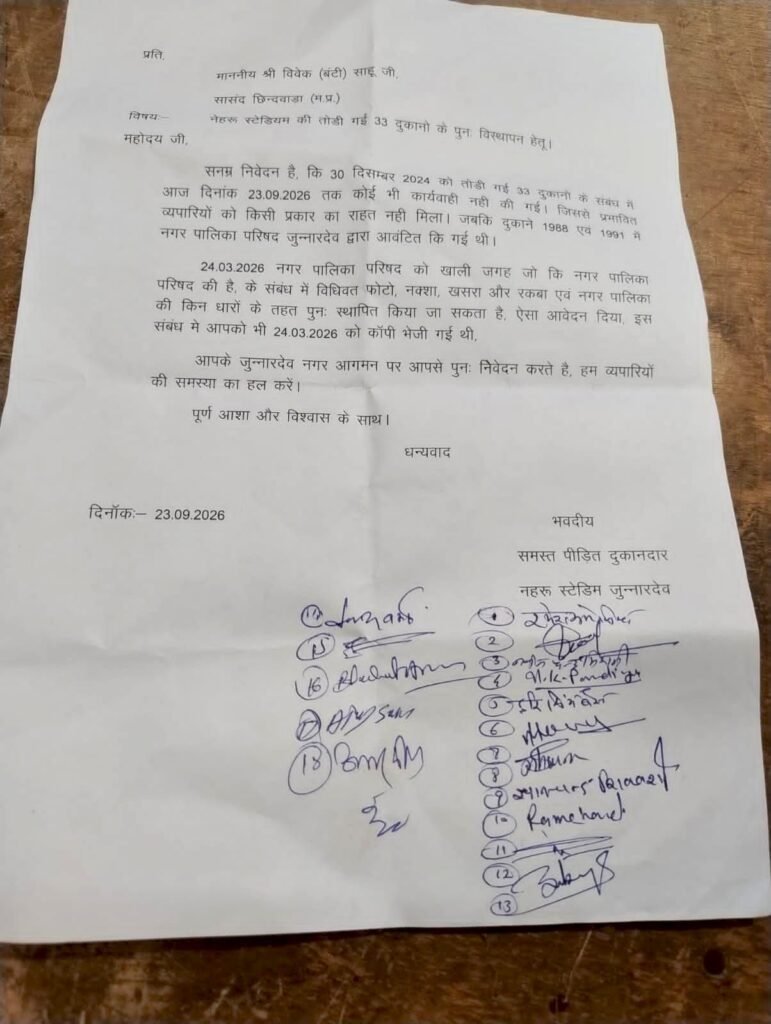 प्रति,
माननीय श्री विवेक (बंटी) साहू जी,
सासंद छिन्दवाडा (म.प्र.)
विषयः– नेहरू स्टेडियम की तोडी गई 33 दुकानो के पुनः विस्थापन हेतू।
महोदय जी,
सनम्र निवेदन है, कि 30 दिसम्बर 2024 को तोडी गई 33 दुकानो के संबध में
आज दिनांक 23.09.2026 तक कोई भी कार्यवाही नही की गई। जिससे प्रभावित
व्यपारियों को किसी प्रकार का राहत नही मिला। जबकि दुकाने 1988 एवं 1991 में
नगर पालिका परिषद जुन्नारदेव द्वारा आवंटित कि गई थी।
24.03.2026 नगर पालिका परिषद को खाली जगह जो कि नगर पालिका
परिषद की है, के संबंध में विधिवत फोटो, नक्शा, खसरा और रकबा एवं नगर पालिका
की किन धारों के तहत पुनः स्थापित किया जा सकता है, ऐसा आवेदन दिया, इस
संबंध मे आपको भी 24.03.2026 को कॉपी भेजी गई थी,
आपके जुन्नारदेव नगर आगमन पर आपसे पुनः निवेदन करते है, हम व्यपारियों
की समस्या का हल करें।
पूर्ण आशा और विश्वास के साथ।
धन्यवाद
दिनॉकः– 23.09.2026
भवदीय
समस्त पीड़ित दुकानदार
नहरू स्टेडिम जुन्नारदेव
1
2
3
4 N.K. Pandi
5
6
7
8
9
10 Ramchand
11
12
13
14
15
16
17
18